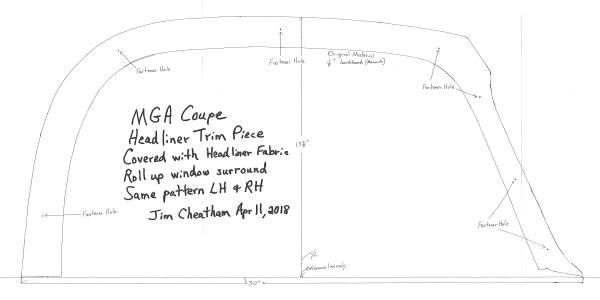 Fastener Hole
Fastener Hole
Original Material
1/8" hardboard (Masonite)
Fastener Hole
Fastener Hole
MGA Coupe
Headliner Trim Piece
Covered with Headliner Fabric
Roll up window surround
Same pattern LH & RH
Jim Cheatham Apr 11, 2018
Fastener Hole
Fastener Hole
Reference line only.
30"